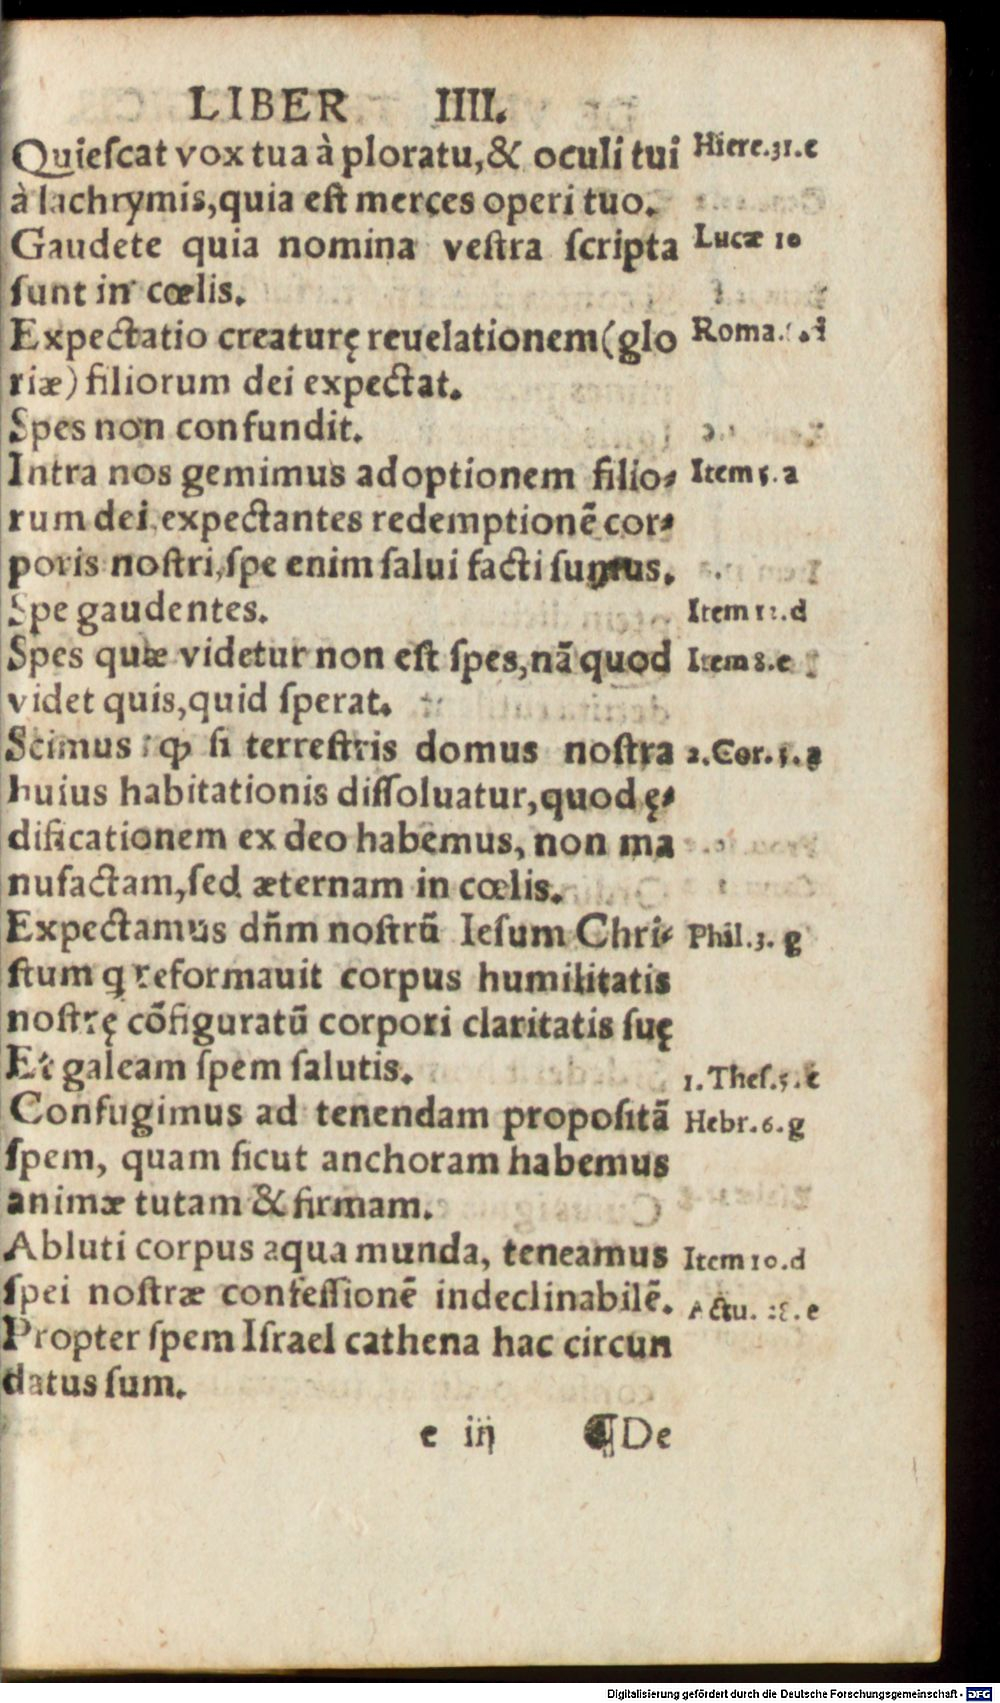 LIBER IIII.
Quieſcat vox tua à ploratu,& oculi tui Hiere.31.c
à lachrymis,quia eſt merces operi tuo.
Gaudete quia nomina veſtra ſcripta Lucæ 10
ſunt in cœlis.
Expectatio creaturę reuelationem(glo Roma.
riæ) filiorum dei expectat.
Spes non confundit.
Intra nos gemimus adoptionem filio⸗ Item 5.a
rum dei expectantes redemptionē cor⸗
poris noſtri,ſpe enim ſalui facti ſumus.
Spe gaudentes. Item 12.d
Spes quæ videtur non eſt ſpes,nã quod Item 8.e
videt quis,quid ſperat.
Scimus ꝙ ſi terreſtris domus noſtra 2.Cor.5.a
huius habitationis diſſoluatur,quod ę⸗
dificationem ex deo habemus, non ma
nufactam,ſed æternam in cœlis.
Expectamus dñm noſtrũ Ieſum Chri⸗ Phil.3.g
ſtum q reformauit corpus humilitatis
noſtrę cõfiguratũ corpori claritatis ſuę
Et galeam ſpem ſalutis. 1.Theſ.5.c
Confugimus ad tenendam propoſitã Hebr.6.g
ſpem, quam ſicut anchoram habemus
animæ tutam & firmam.
Abluti corpus aqua munda, teneamus Item 10.d
ſpei noſtræ confeſſionē indeclinabilē. Actu. 28.e
Propter ſpem Iſrael cathena hac circun
datus ſum.
e iij ¶De
Digitalisierung gefördert durch die Deutsche Forschungsgemeinschaft - DFG